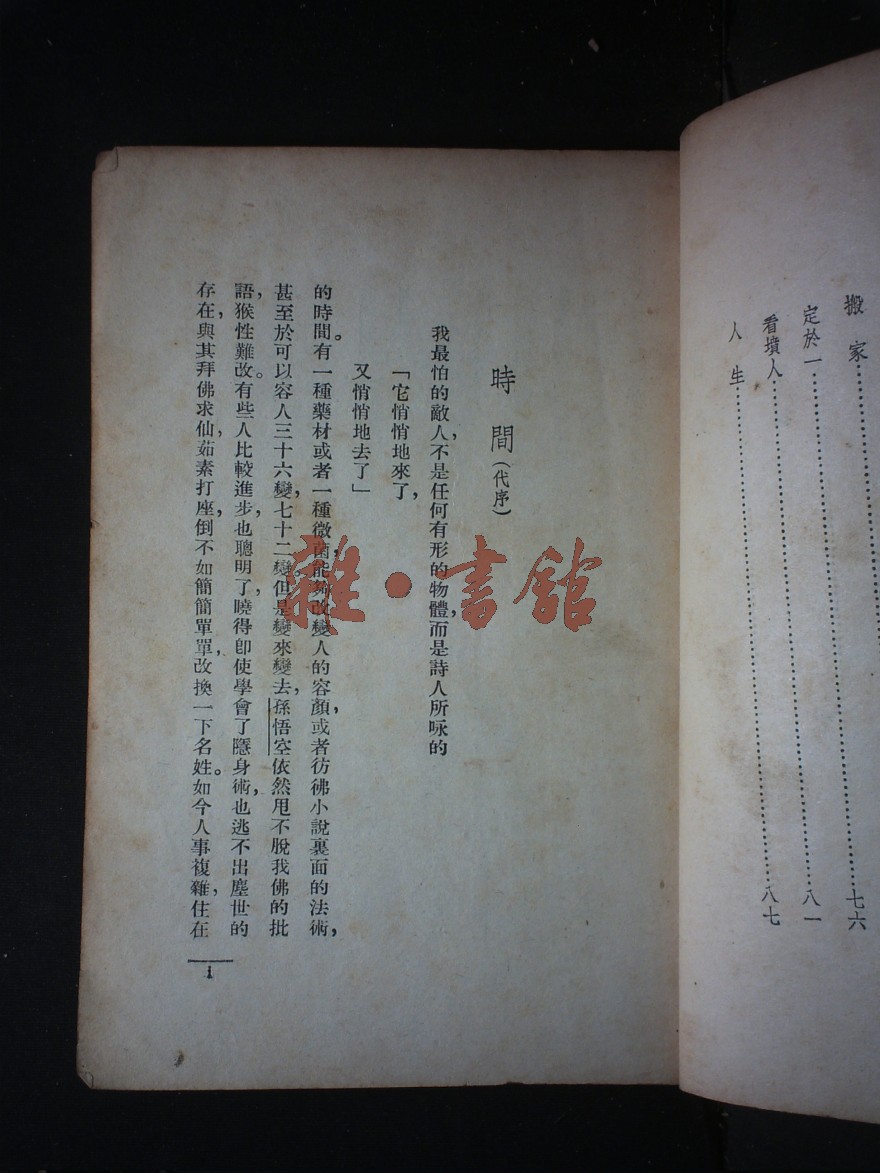 搬家⋯⋯⋯⋯⋯⋯⋯⋯七六
定於一⋯⋯⋯⋯⋯⋯⋯⋯八一
看墳人⋯⋯⋯⋯⋯⋯⋯⋯八七
人生⋯⋯⋯⋯⋯⋯⋯⋯
時間(代序)
我最怕的敵人,不是任何有形的物體,而是詩人所咏的
「它悄悄地來了,
又悄悄地去了」
的時間。有一種藥材或者一種微菌,能夠改變人的容顏,或者彷彿小說裏面的法術,
甚至於可以容人三十六變,七十二變。但是變來變去,孫悟空依然甩不脫我佛的批
語,猴性難改。有些人比較進步,也聰明了,曉得卽使學會了隱身術,也逃不出塵世的
存在,與其拜佛求仙,茹素打座,倒不如簡簡單單,改換一下名姓。如今人事複雜,住在
1
雜·書館